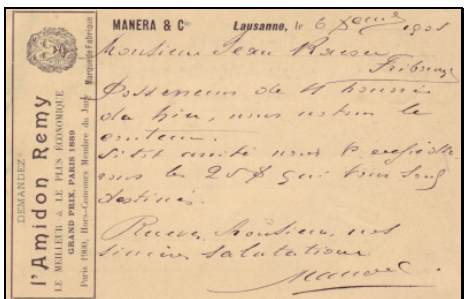 DEMANDEZ
l'Amidon Remy
LE MEILLEUR & LE PLUS ÉCONOMIQUE
GRAND PRIX, PARIS 1889
Paris 1900, Hors-Concours Membre du Jury
Marque de Fabrique
MANERA & Cie Lausanne, le 6 1905
Monsieur Jean
Fribourg
Possesseurs de
du hier, nous notons le
contenu.
Sitôt arrivé nous
vous les 25 qui vous sont
destinés.
Recevez, Monsieur, nos
sincères salutations
Manera